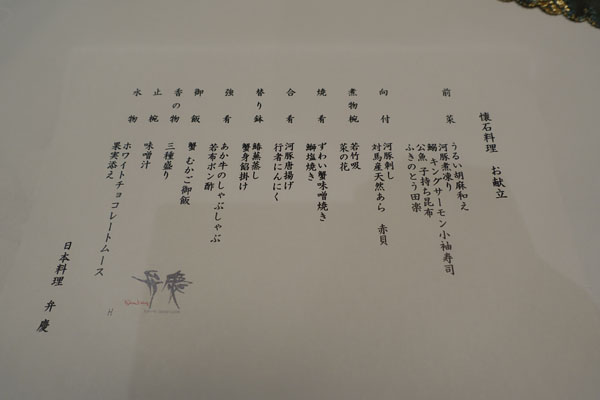 懐石料理 お献立
前菜 うるい胡麻和え
河豚煮凍り
鰯 キングサーモン小袖寿司
公魚 子持ち昆布
ふきのとう田楽
向付 河豚刺し
対馬産天然あら 赤貝
煮物椀 若竹吸
菜の花
焼肴 ずわい蟹味噌焼き
鰤塩焼き
合肴 河豚唐揚げ
行者にんにく
替り鉢 鰆蕪蒸し
蟹身餡掛け
強肴 あか牛のしゃぶしゃぶ
若布ポン酢
御飯 蟹 むかご御飯
香の物 三種盛り
止椀 味噌汁
水物 ホワイトチョコレートムース
果実添え
日本料理 弁慶
弁慶